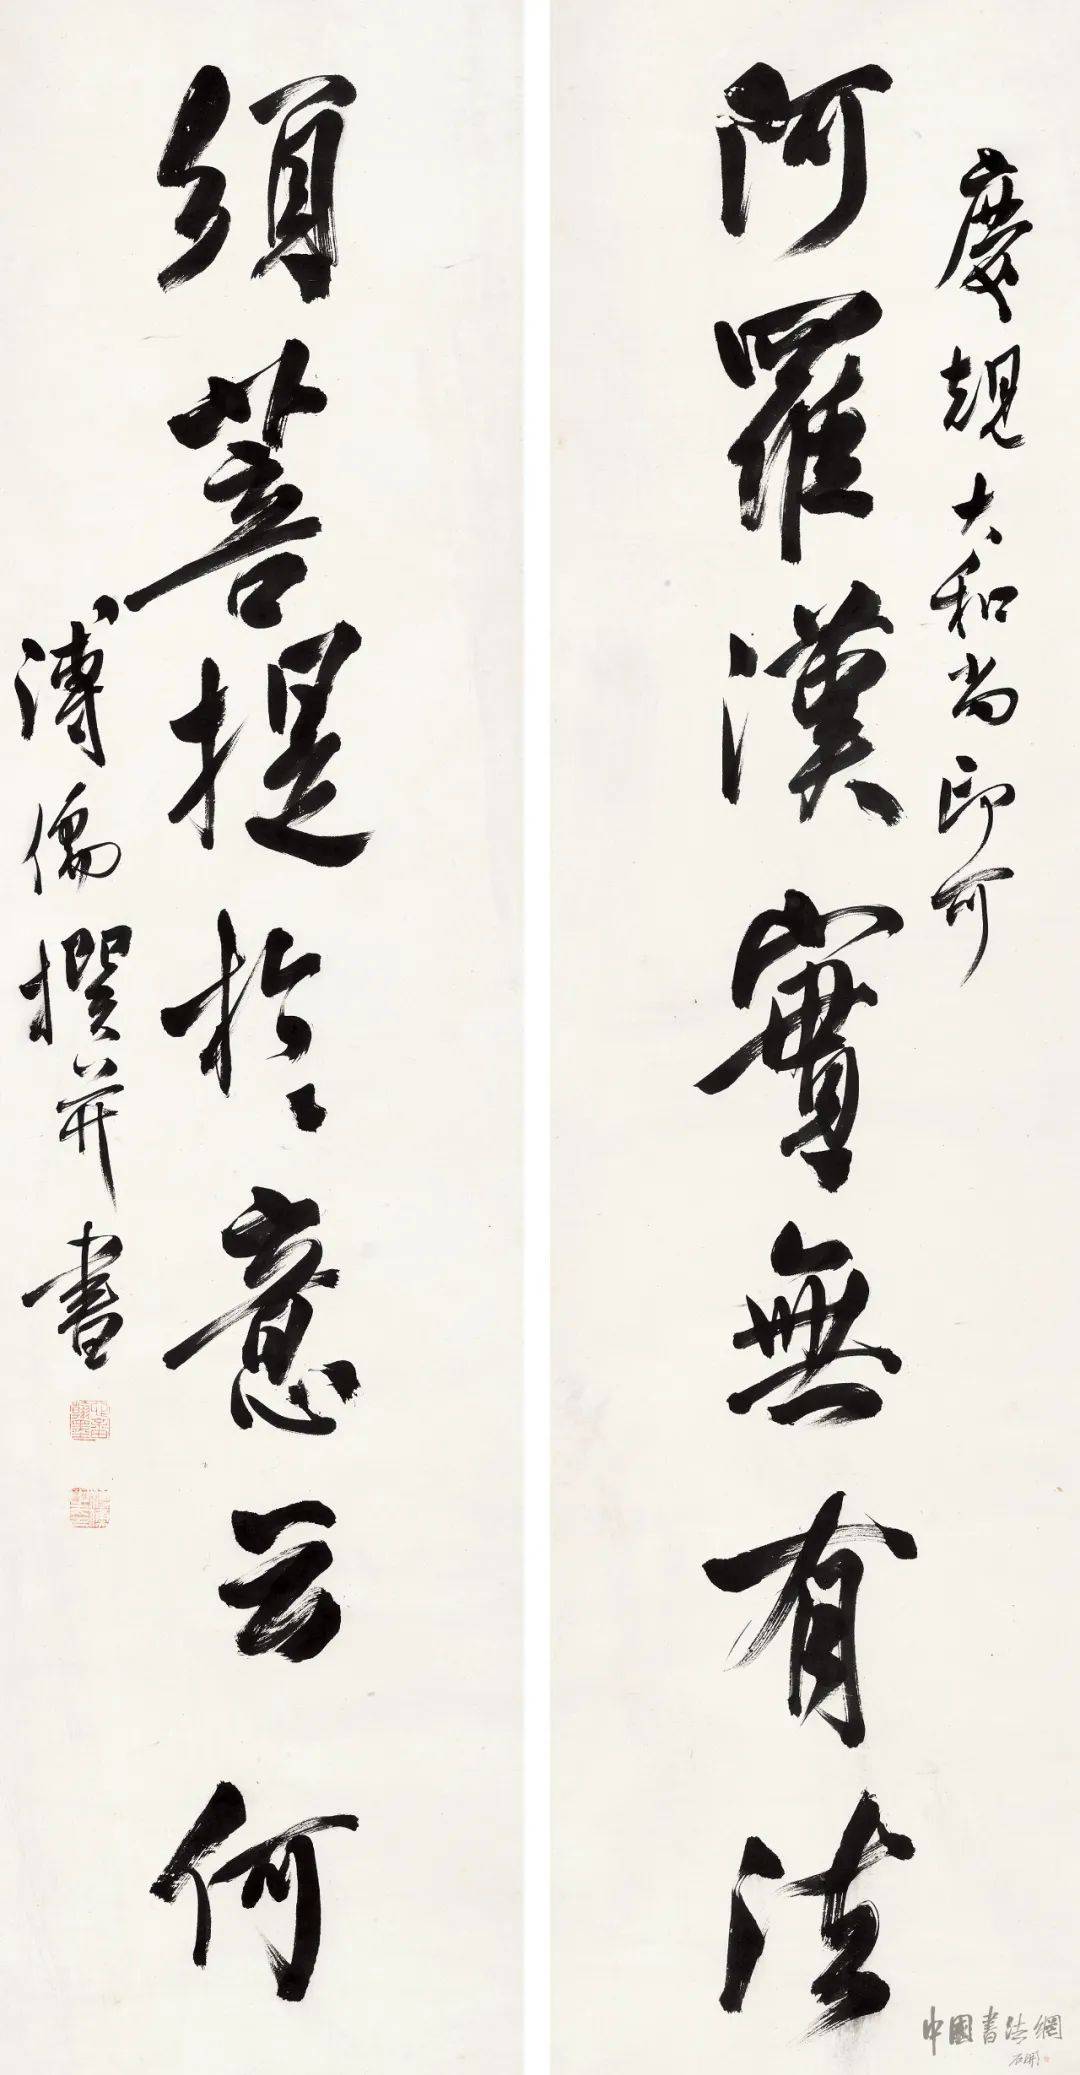 慶規大和尚印可
阿羅漢實無有法
須菩提於意云何
溥儒撰并書
中國書法網
石開